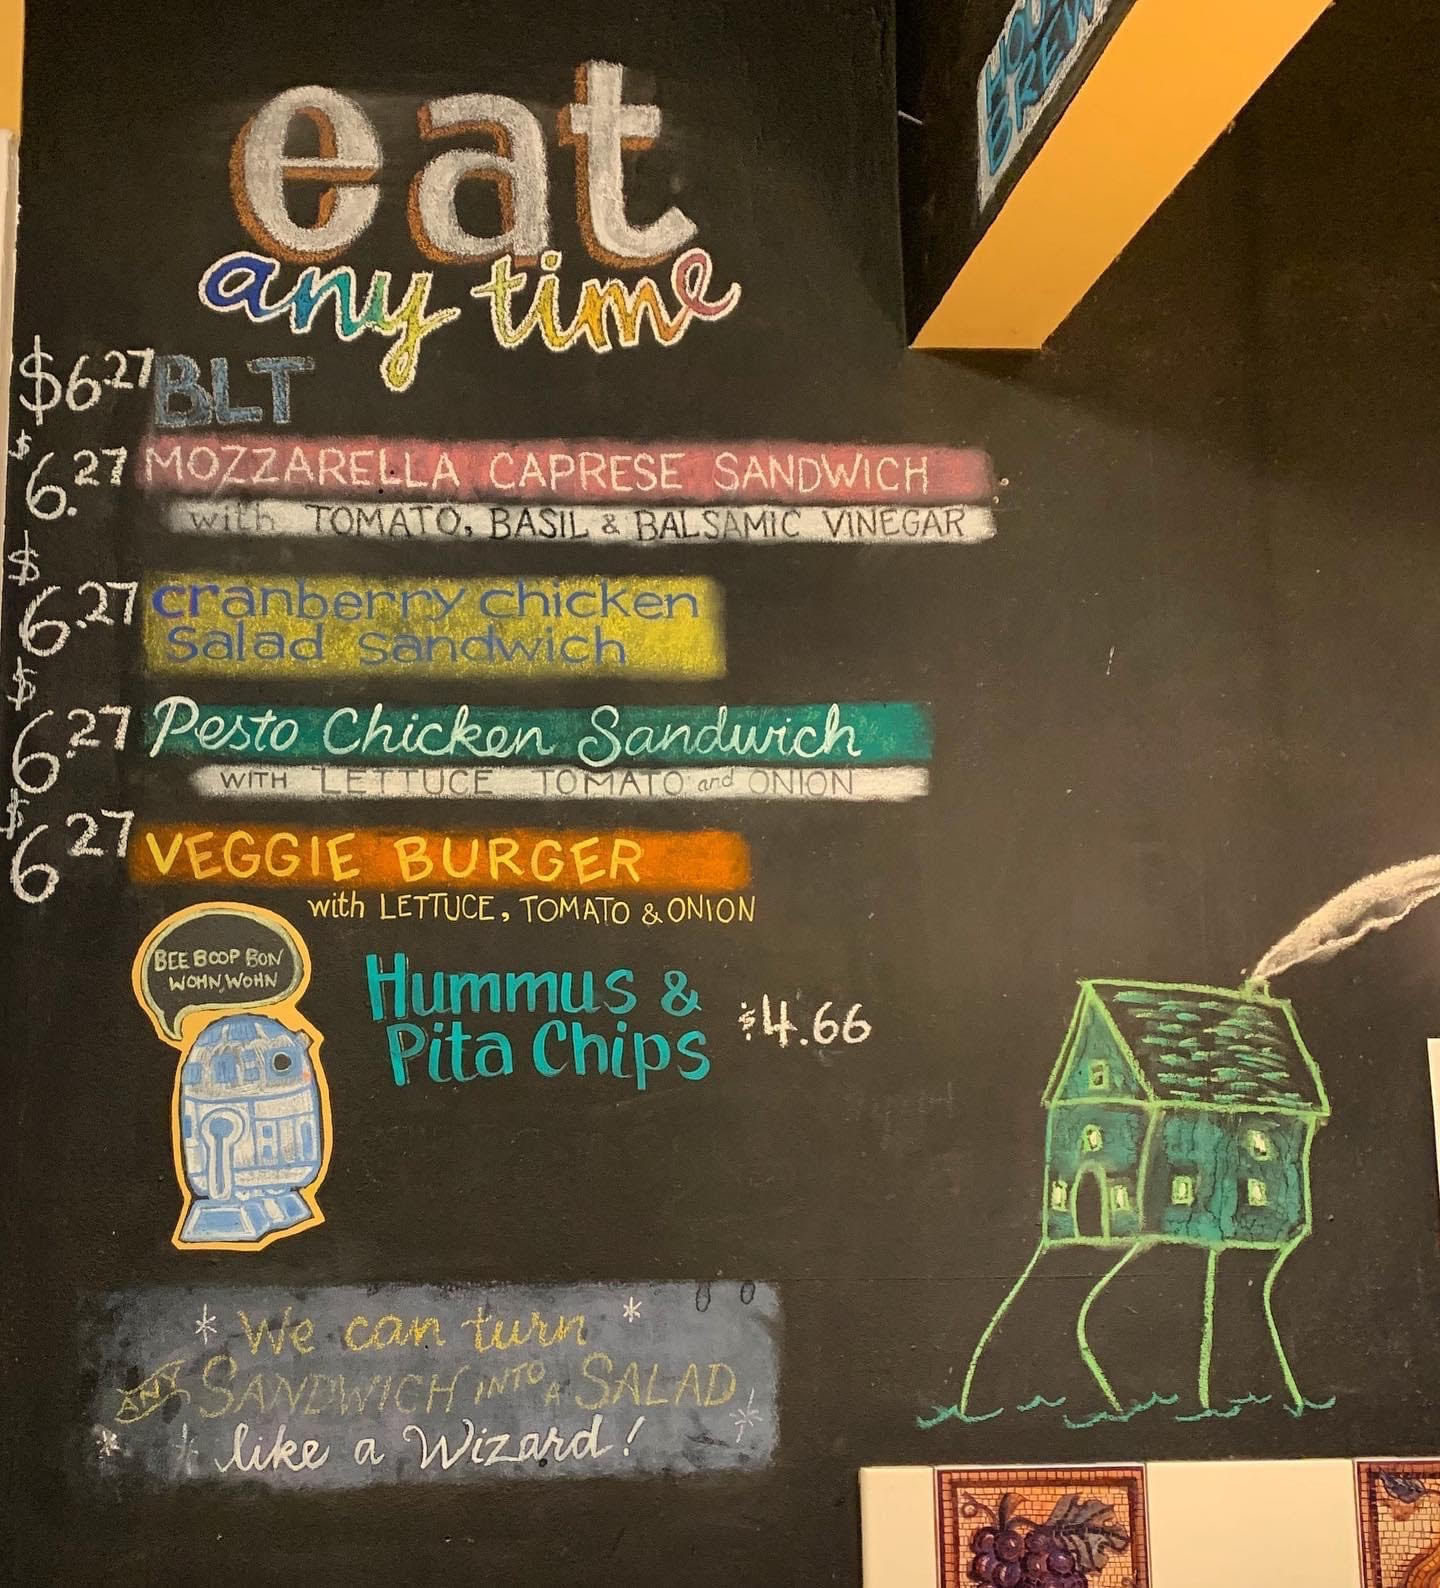 HOUSE
BREW
eat
any time
$6.27 BLT
$6.27 MOZZARELLA CAPRESE SANDWICH
with TOMATO, BASIL & BALSAMIC VINEGAR
$6.27 cranberry chicken
salad sandwich
$6.27 Pesto Chicken Sandwich
WITH LETTUCE TOMATO and ONION
$6.27 VEGGIE BURGER
with LETTUCE, TOMATO & ONION
BEE BOOP BON
WOHN, WOHN
Hummus &
Pita Chips $4.66
* We can turn *
ANY SANDWICH INTO A SALAD
* like a Wizard! *